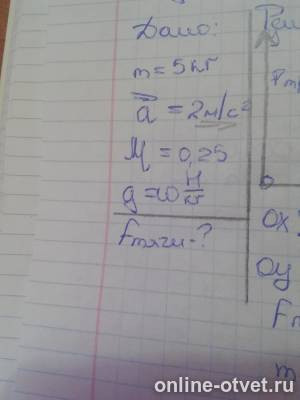 Дано:
m = 5 кг
a⃗ = 2 м/с²
M = 0,25
g = 10 Н/кг
Fтяги - ?
OX
OY
Fт
m
online-otvet.ru